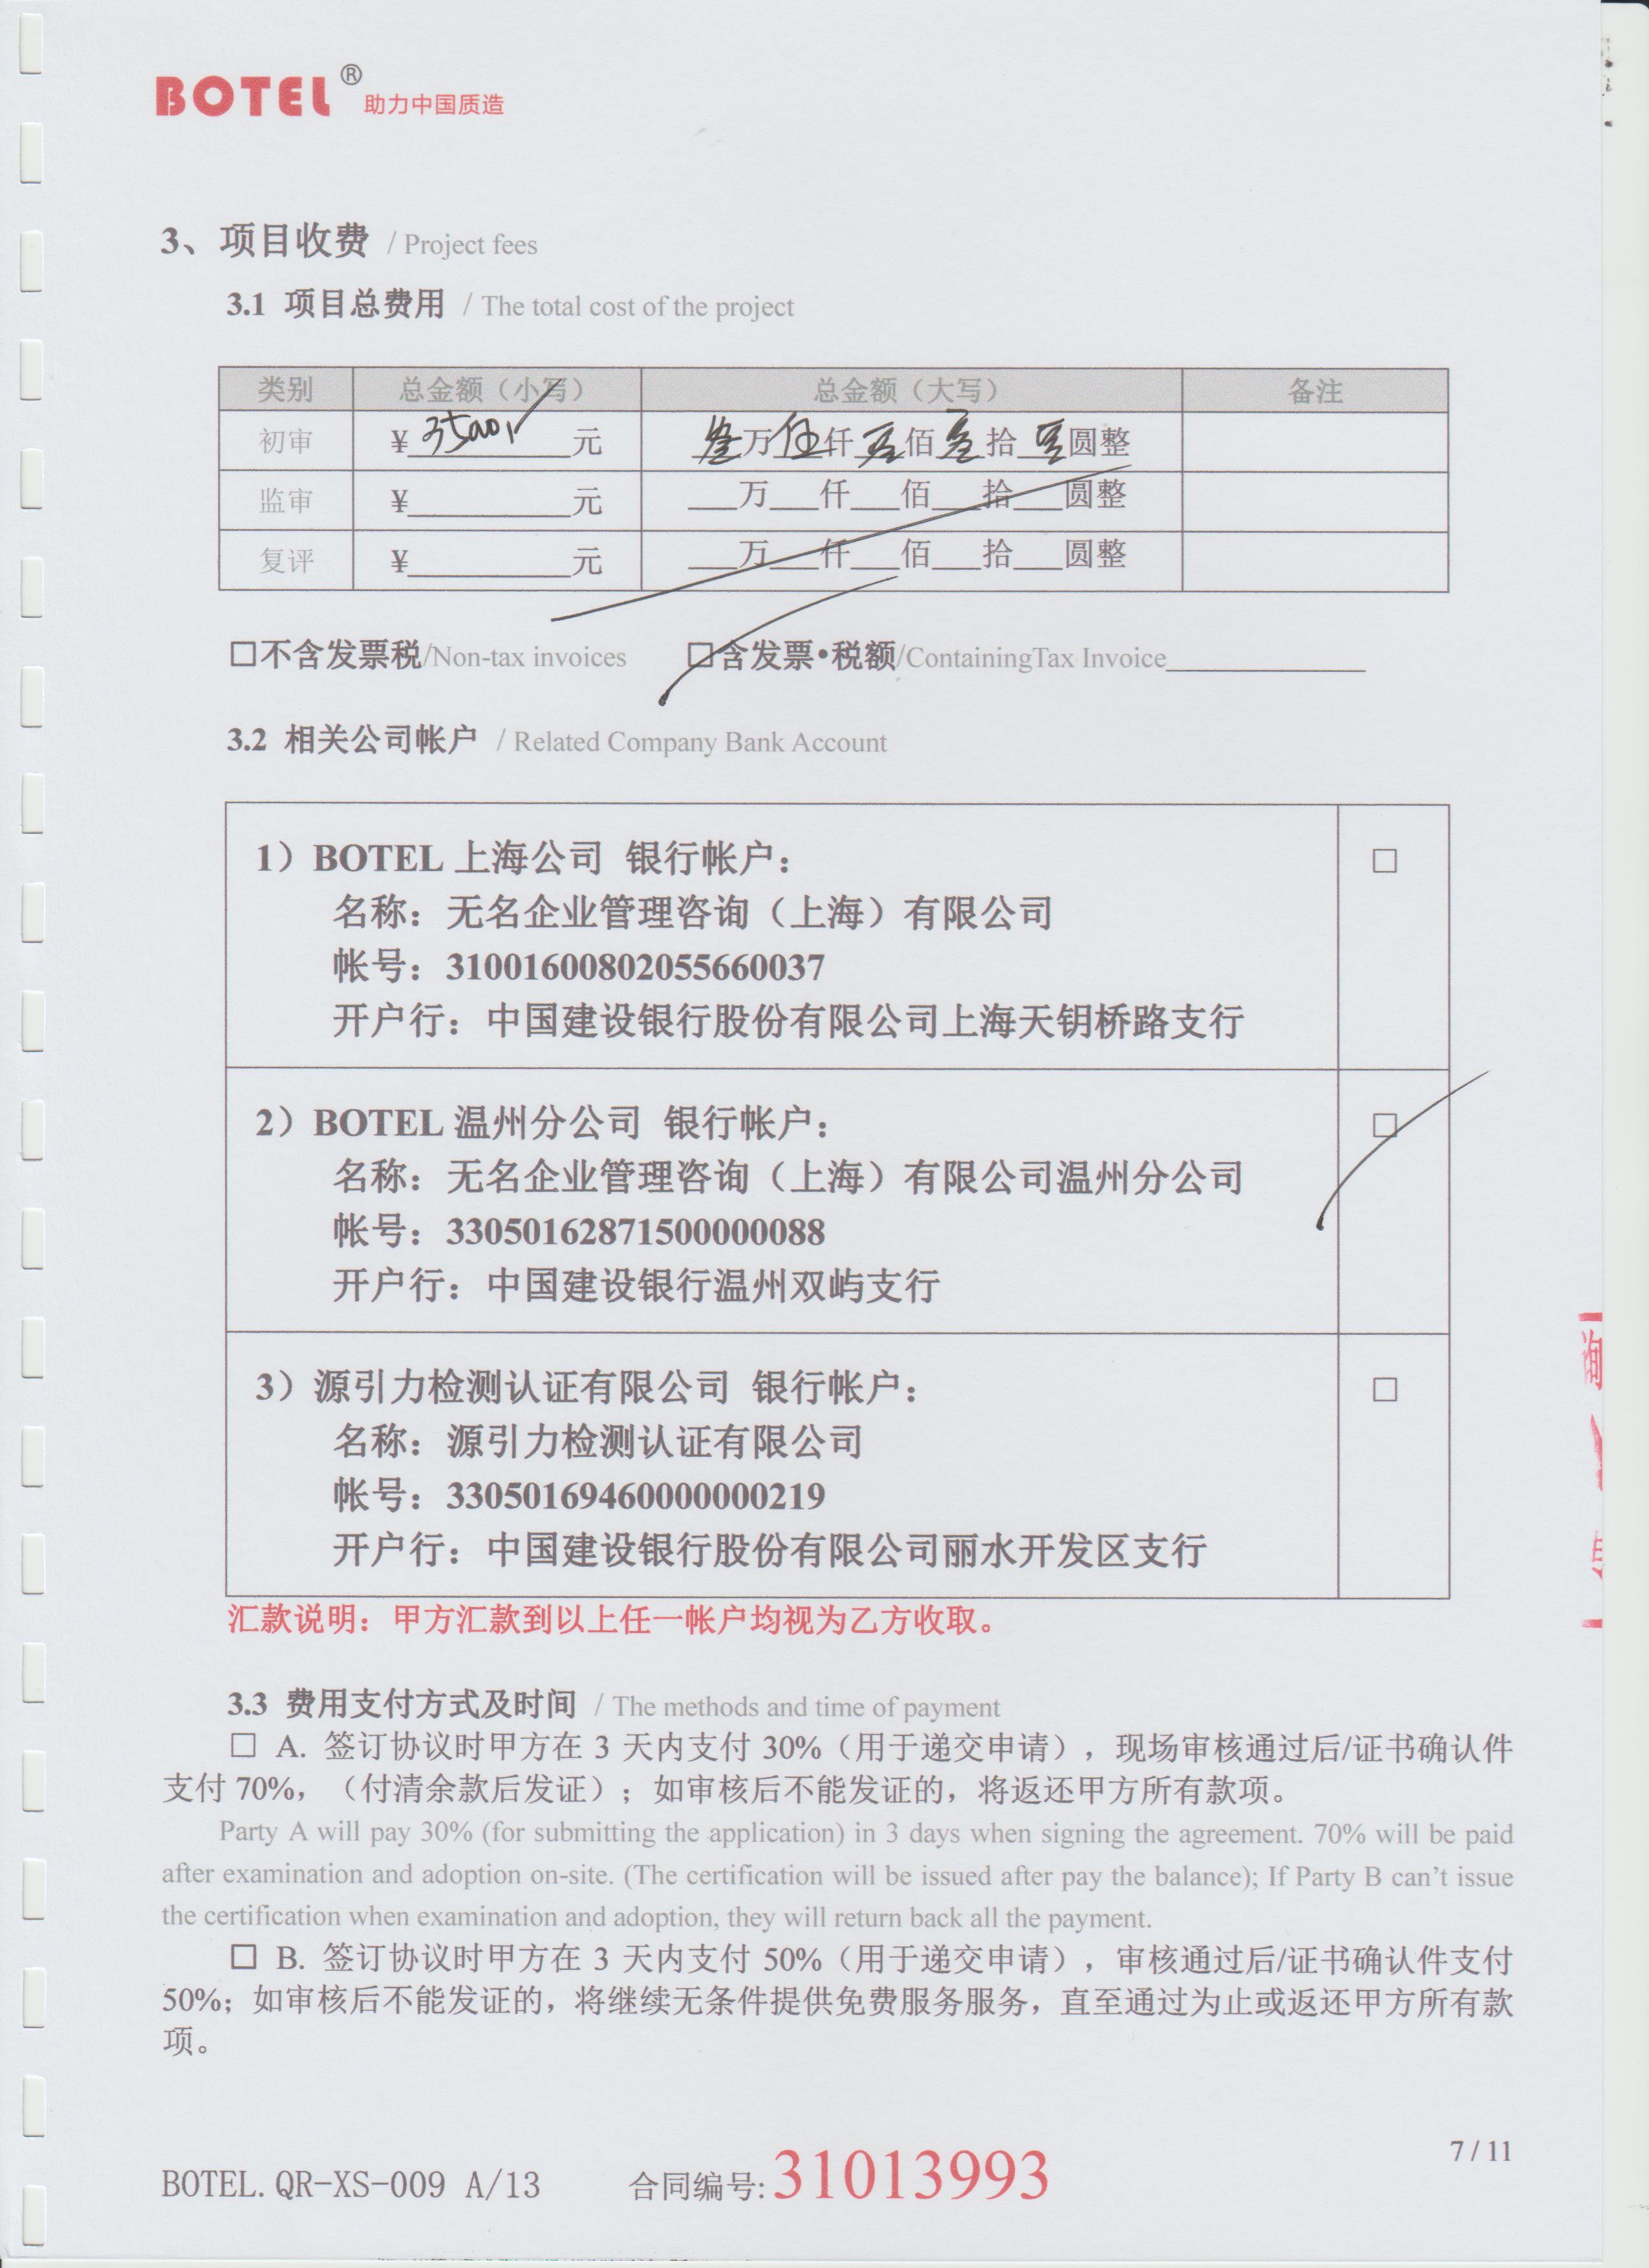 BOTEL® 助力中国质造
3、项目收费 / Project fees
3.1 项目总费用 / The total cost of the project
类别 总金额（小写） 总金额（大写） 备注
初审 ¥35000元 叁万伍仟零佰零拾零圆整
监审 ¥__________元 ___万___仟___佰___拾___圆整
复评 ¥__________元 ___万___仟___佰___拾___圆整
□不含发票税/Non-tax invoices □含发票•税额/ContainingTax Invoice____________
3.2 相关公司帐户 / Related Company Bank Account
1）BOTEL 上海公司 银行帐户： □
名称：无名企业管理咨询（上海）有限公司
帐号：31001600802055660037
开户行：中国建设银行股份有限公司上海天钥桥路支行
2）BOTEL 温州分公司 银行帐户： □
名称：无名企业管理咨询（上海）有限公司温州分公司
帐号：33050162871500000088
开户行：中国建设银行温州双屿支行
3）源引力检测认证有限公司 银行帐户： □
名称：源引力检测认证有限公司
帐号：33050169460000000219
开户行：中国建设银行股份有限公司丽水开发区支行
汇款说明：甲方汇款到以上任一帐户均视为乙方收取。
询
3.3 费用支付方式及时间 / The methods and time of payment
□ A. 签订协议时甲方在 3 天内支付 30%（用于递交申请），现场审核通过后/证书确认件
支付 70%，（付清余款后发证）；如审核后不能发证的，将返还甲方所有款项。
Party A will pay 30% (for submitting the application) in 3 days when signing the agreement. 70% will be paid
after examination and adoption on-site. (The certification will be issued after pay the balance); If Party B can't issue
the certification when examination and adoption, they will return back all the payment.
□ B. 签订协议时甲方在 3 天内支付 50%（用于递交申请），审核通过后/证书确认件支付
50%；如审核后不能发证的，将继续无条件提供免费服务服务，直至通过为止或返还甲方所有款
项。
7 / 11
BOTEL. QR-XS-009 A/13 合同编号: 31013993